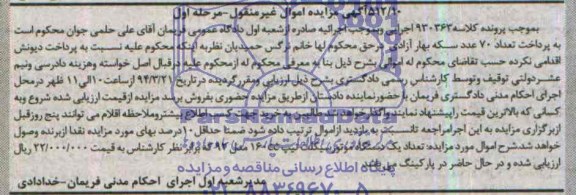 ۵۱۲/۹۰ آگهی مزایده اموال غیرمنقول-مرحله اول
بموجب پرونده کلاسه ۹۳۰۳۶۳ اجرایی و بموجب اجرائیه صادره از شعبه اول دادگاه عمومی فریمان آقای علی حلمی جوان محکوم است
به پرداخت تعداد ۷۰ عدد سکه بهار آزادی درحق محکوم لها خانم نرگس حمیدیان نظربه اینکه محکوم علیه نسبت به پرداخت دیونش
اقدامی نکرده حسب تقاضای محکوم له اموالی بشرح ذیل بنا به معرفی محکوم له ازمحکوم علیه درقبال اصل خواسته وهزینه دادرسی ونیم
عشردولتی توقیف وتوسط کارشناس رسمی دادگستری بشرح ذیل ارزیابی ومقررگردیده درتاریخ ۹۴/۳/۲۱ ازساعت ۱۰الی۱۱ ظهر درمحل
اجرای احکام مدنی دادگستری فریمان باحضورنماینده دادستان ازطریق مزایده حضوری بفروش برسد مزایده ازقیمت ارزیابی شده شروع وبه
کسانی که بالاترین قیمت راپیشنهاد نمایند واگذارخواهدشد طالبین به خرید می توانند جهت اطلاع بیشتروملاحظه اقلام می توانند پنج روزقبل
ازبرگزاری مزایده به این اجرامراجعه تانسبت به بازدید ازاموال ترتیب داده شود ضمنا حداقل ۱۰درصد بهای مورد مزایده نقدا ازبرنده وصول
خواهد شد.شرح اموال مورد مزایده: تعداد یک دستگاه موتورسیکلت تیپ ۱۶۰cc مدل ۱۳۹۲ که برابر نظر کارشناس به قیمت ۲۲/۰۰۰/۰۰۰ ریال
ارزیابی شده و در حال حاضر در پارکینگ می باشد
پایگاه اطلاع رسانی مناقصه ومزایده
مدیرشعبه اول اجرای احکام مدنی فریمان-خدادادی